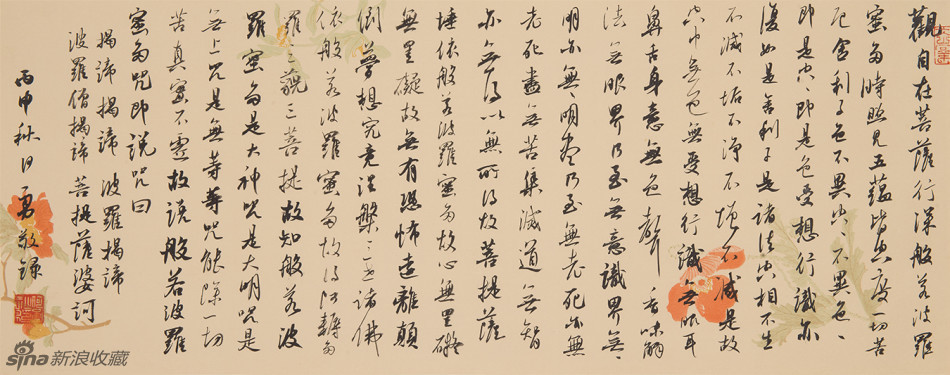 觀自在菩薩行深般若波羅
蜜多時照見五蘊皆空度一切苦
厄舍利子色不異空、不異色、
即是空、即是色受想行識亦
復如是舍利子是諸法空相不生
不滅不垢不淨不增不減是故
空中無色無受想行識無眼耳
鼻舌身意無色聲香味觸
法無眼界乃至無意識界無、
明亦無明盡乃至無老死亦無
老死盡無苦集滅道無智
亦無得以無所得故菩提薩
埵依般若波羅蜜多故心無罣礙
無罣礙故無有恐怖遠離顛
倒夢想究竟涅槃三世諸佛
依般若波羅蜜多故得阿耨多
羅三藐三菩提故知般若波
羅蜜多是大神咒是大明咒是
無上咒是無等等咒能除一切
苦真實不虛故說般若波羅
蜜多咒即說咒曰
揭諦揭諦 波羅揭諦
波羅僧揭諦 菩提薩婆訶
丙申秋月勇敬錄
sina新浪收藏